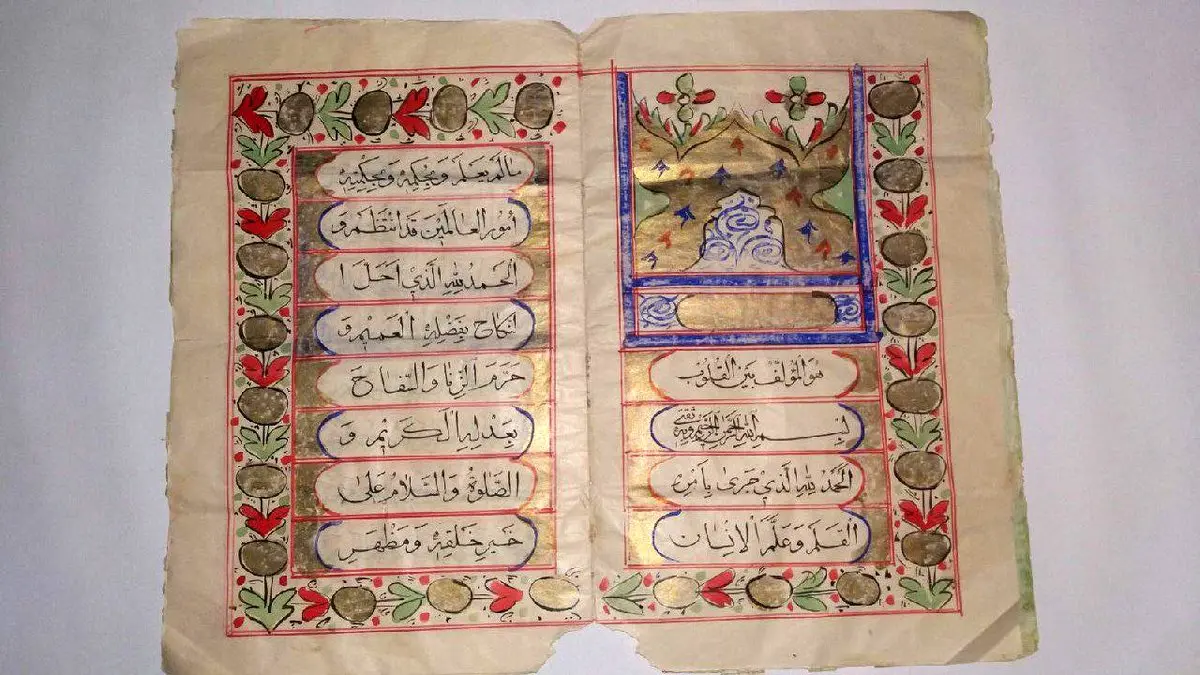 هو المؤلف بين القلوب
بسم الله الرحمن الرحيم وبه ثقتی
الحمد لله الذي جرى بامره
القلم وعلم الانسان
مالم يعلم وبحكمه وبحكمته
أمور العالمين قد انتظم و
الحمد لله الذي احل ا
لنكاح بفضله العميم و
حرم الزنا والسفاح
بعدله الكريم و
الصلوة والسلام على
خير خلقه ومظهر